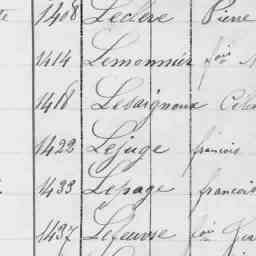 1408 Leclère Pierre
1414 Lemonnier
1418 Lesaignoux
1422 Lejuge françois
1433 Lepage françois
1437 Lefeuvre